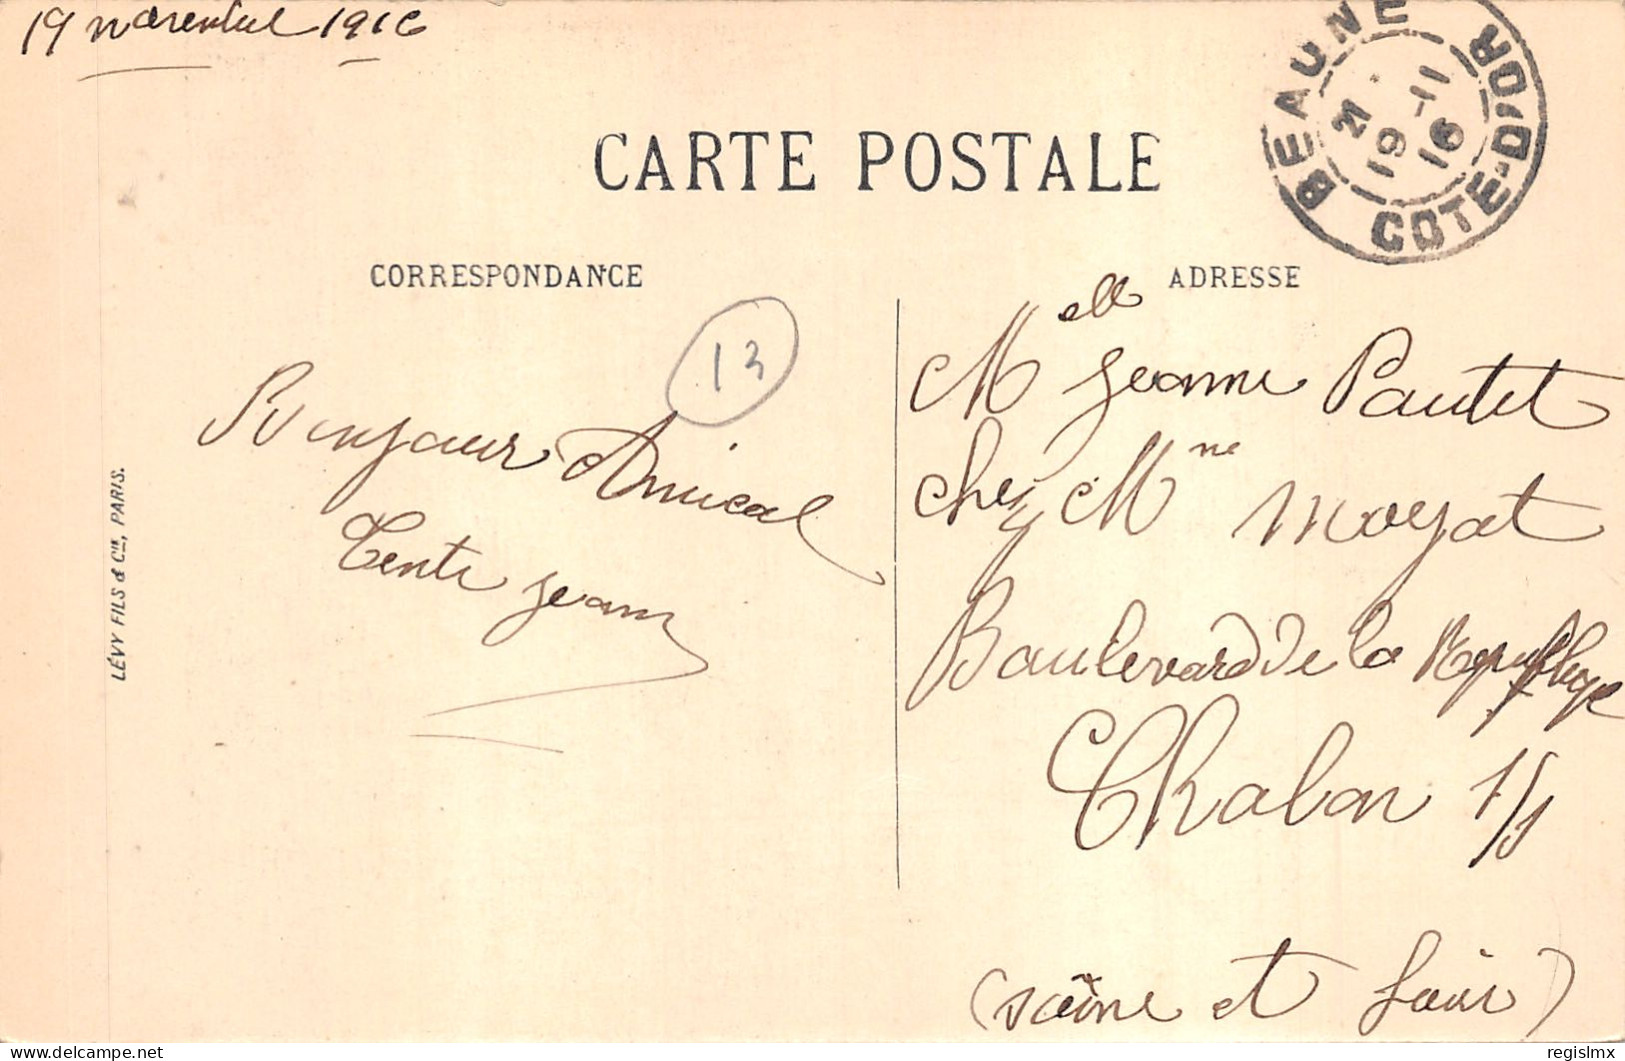 19 novembre 1916
BEAUNE
COTE-D'OR
21
19-11
16
CARTE POSTALE
CORRESPONDANCE
ADRESSE
13
Bonjour Amical
Jean
LÉVY FILS & Cie, PARIS.
Melle Jeanne Pautet
chez Mme Moyat
Boulevard de la Republique
Chalon s/s
(saône et Loire)
© regislmx